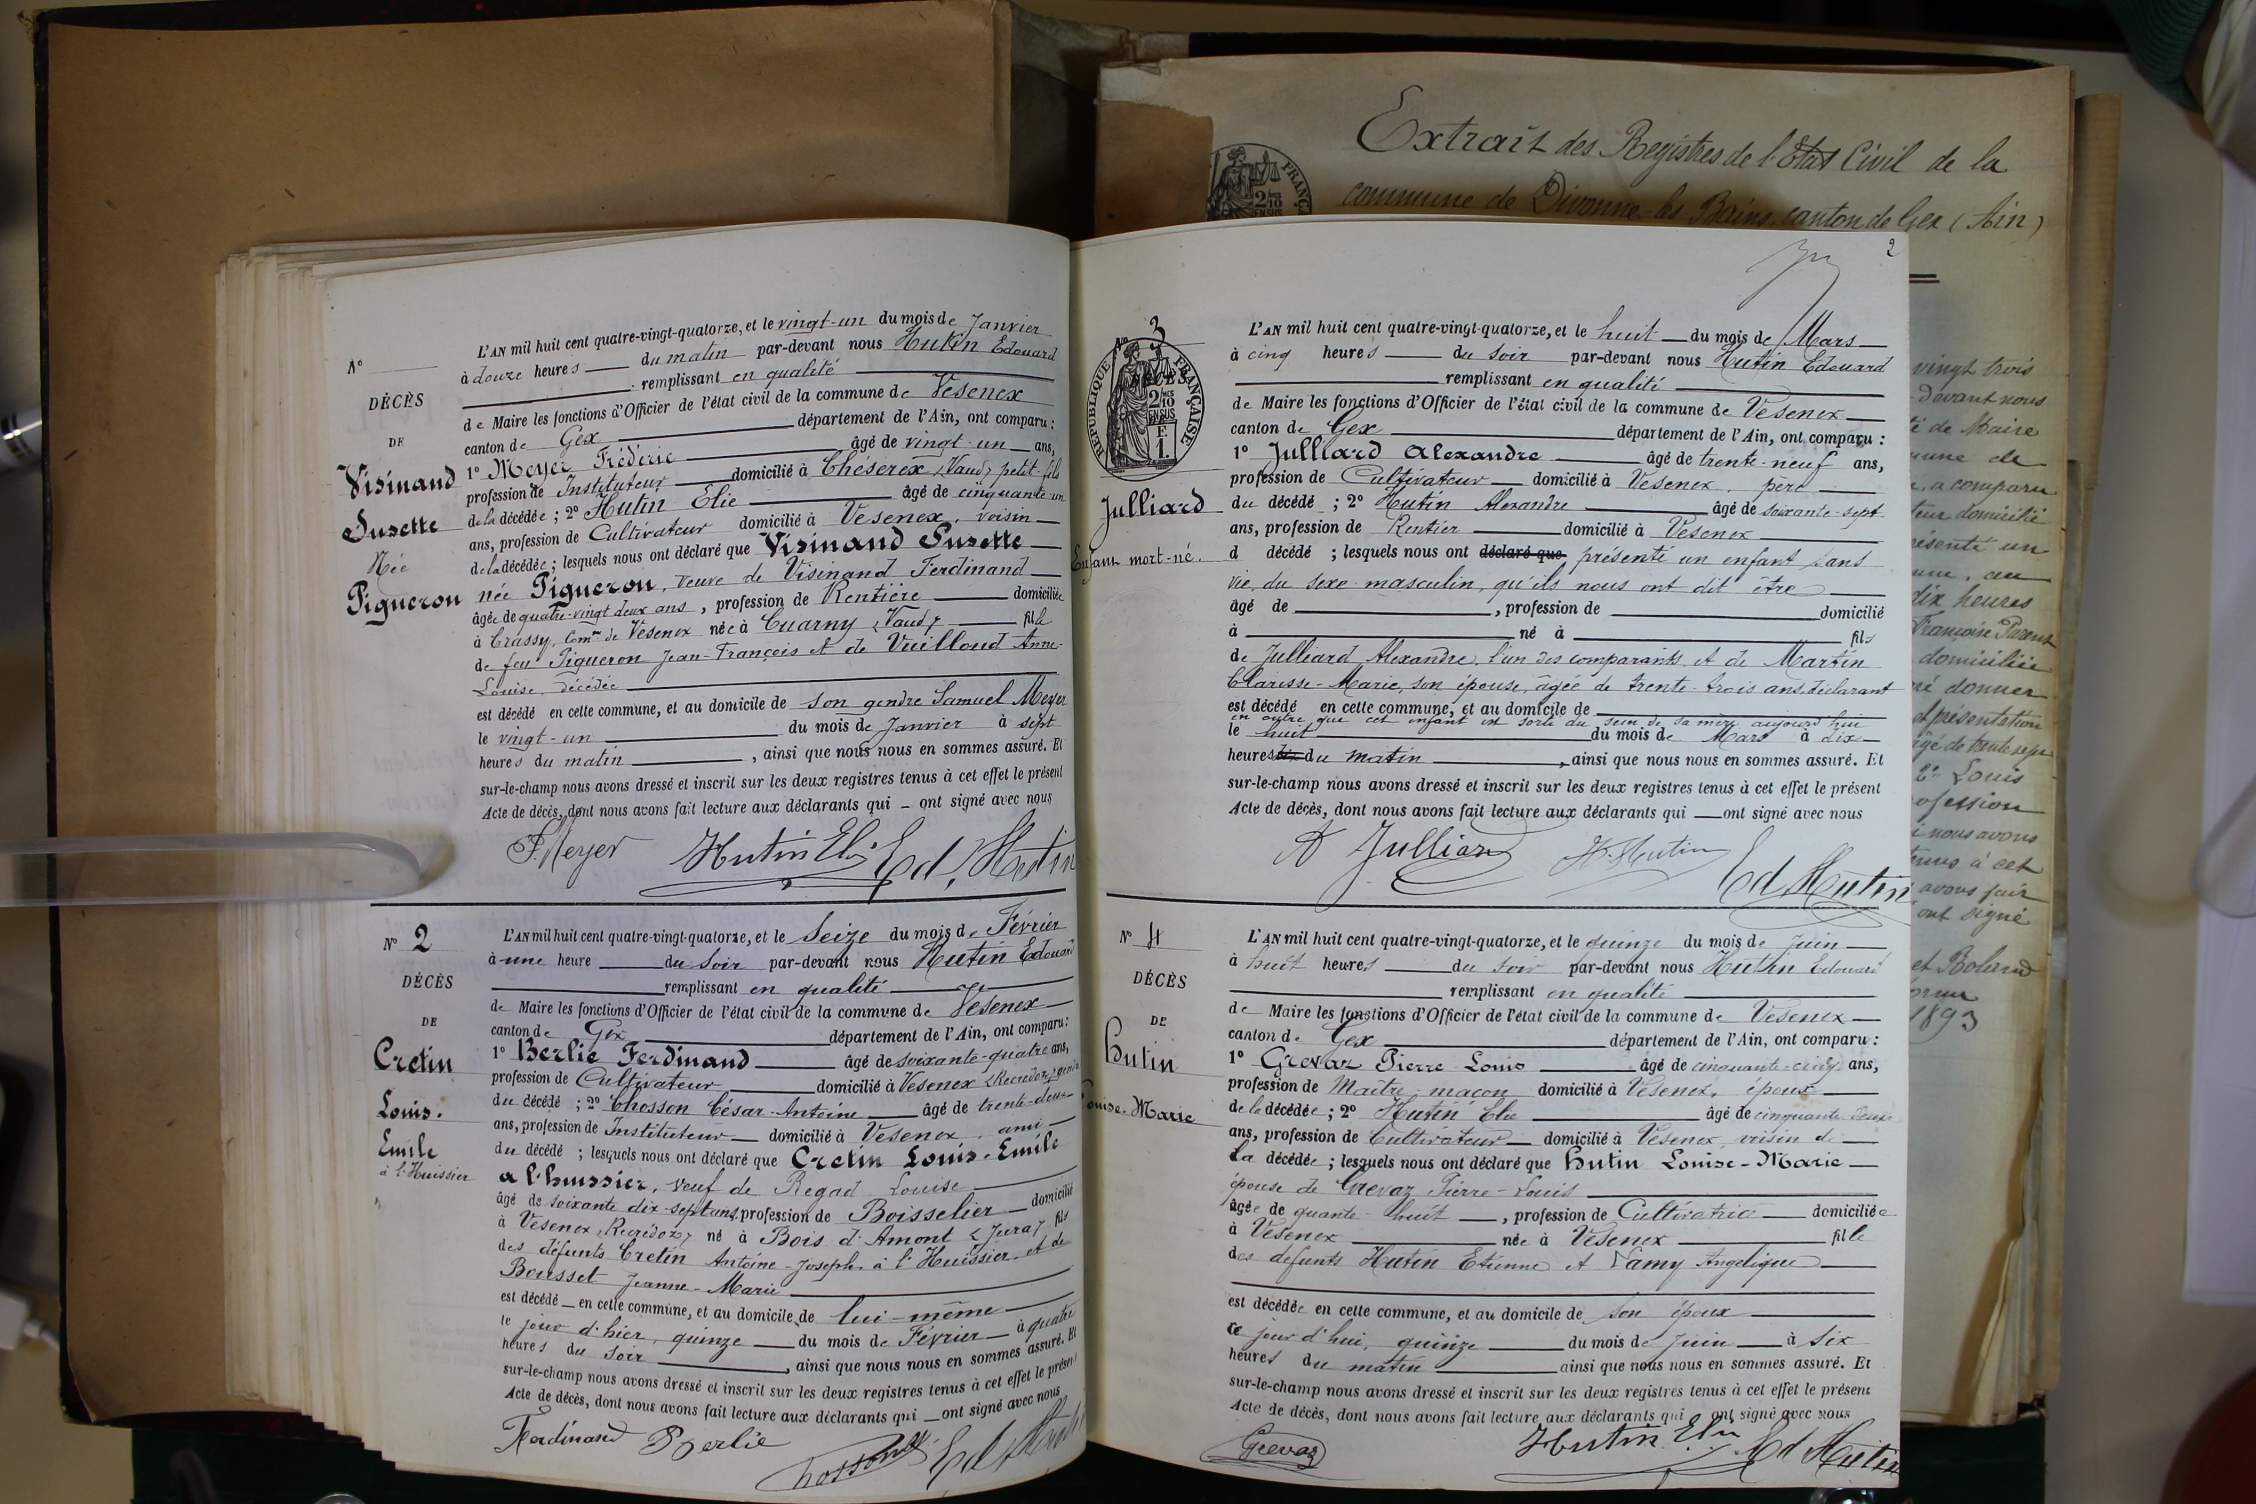 N°
DÉCÈS
DE
Visinand
Suzette
Née
Pigueron
L'AN mil huit cent quatre-vingt-quatorze, et le vingt-un du mois de Janvier
à douze heures du matin par-devant nous Hutin Edouard
remplissant en qualité
de Maire les fonctions d'Officier de l'état civil de la commune de Vesenex
canton de Gex département de l'Ain, ont comparu :
1° Meyer Fréderic âgé de vingt-un ans,
profession de Instituteur domicilié à Chéserex (Vaud) petit-fils
de la décédée ; 2° Hutin Elie âgé de cinquante-un
ans, profession de Cultivateur domicilié à Vesenex, voisin
de la décédée ; lesquels nous ont déclaré que Visinand Suzette
née Pigueron, veuve de Visinand Ferdinand
âgée de quatre-vingt deux ans, profession de Rentière domiciliée
à Crassy, Comne de Vesenex née à Cuarny (Vaud) fille
de feu Pigueron Jean-François et de Vuilloud Anne-
Louise, décédée
est décédé en cette commune, et au domicile de son gendre Samuel Meyer
le vingt-un du mois de Janvier à sept
heures du matin, ainsi que nous nous en sommes assuré. Et
sur-le-champ nous avons dressé et inscrit sur les deux registres tenus à cet effet le présent
Acte de décès, dont nous avons fait lecture aux déclarants qui ont signé avec nous
F. Meyer Hutin Elie Ed. Hutin
N° 2
DÉCÈS
DE
Cretin
Louis-
Emile
à l'Huissier
L'AN mil huit cent quatre-vingt-quatorze, et le Seize du mois de Février
à une heure du soir par-devant nous Hutin Edouard
remplissant en qualité
de Maire les fonctions d'Officier de l'état civil de la commune de Vesenex
canton de Gex département de l'Ain, ont comparu :
1° Berlie Ferdinand âgé de soixante-quatre ans,
profession de Cultivateur domicilié à Vesenex (Recredoz) gendre
du décédé ; 2° Chosson César-Antoine âgé de trente-deux
ans, profession de Instituteur domicilié à Vesenex, ami
du décédé ; lesquels nous ont déclaré que Cretin Louis-Emile
a l'huissier, veuf de Regad Louise
âgé de soixante dix-sept ans, profession de Boisselier domicilié
à Vesenex (Recredoz) né à Bois d'Amont (Jura) fils
des défunts Cretin Antoine-Joseph à l'Huissier et de
Bousset Jeanne-Marie
est décédé en cette commune, et au domicile de lui-même
le jour d'hier, quinze du mois de Février à quatre
heures du soir, ainsi que nous nous en sommes assuré. Et
sur-le-champ nous avons dressé et inscrit sur les deux registres tenus à cet effet le présent
Acte de décès, dont nous avons fait lecture aux déclarants qui ont signé avec nous
Ferdinand Berlie Chosson Ed Hutin
Extrait des Registres de l'Etat Civil de la
commune de Divonne-les-Bains, canton de Gex (Ain)
2
N° 3
DÉCÈS
RÉPUBLIQUE FRANÇAISE
2/10
EN SUS
F
1.
Julliard
Enfant mort-né.
L'AN mil huit cent quatre-vingt-quatorze, et le huit du mois de Mars
à cinq heures du soir par-devant nous Hutin Edouard
remplissant en qualité
de Maire les fonctions d'Officier de l'état civil de la commune de Vesenex
canton de Gex département de l'Ain, ont comparu :
1° Julliard Alexandre âgé de trente-neuf ans,
profession de Cultivateur domicilié à Vesenex, père
du décédé ; 2° Hutin Alexandre âgé de soixante-sept
ans, profession de Rentier domicilié à Vesenex
d décédé ; lesquels nous ont déclaré que présenté un enfant sans
vie, du sexe masculin, qu'ils nous ont dit être
âgé de , profession de domicilié
à né à fils
de Julliard Alexandre, l'un des comparants et de Martin
Clarisse-Marie, son épouse, âgée de trente-trois ans, déclarant
est décédé en cette commune, et au domicile de
en outre que cet enfant est sorti du sein de sa mère aujourd'hui
le huit du mois de Mars à dix
heures du matin, ainsi que nous nous en sommes assuré. Et
sur-le-champ nous avons dressé et inscrit sur les deux registres tenus à cet effet le présent
Acte de décès, dont nous avons fait lecture aux déclarants qui ont signé avec nous
A Julliard Hutin Ed Hutin
N° 4
DÉCÈS
DE
Hutin
Louise-Marie
L'AN mil huit cent quatre-vingt-quatorze, et le quinze du mois de Juin
à huit heures du soir par-devant nous Hutin Edouard
remplissant en qualité
de Maire les fonctions d'Officier de l'état civil de la commune de Vesenex
canton de Gex département de l'Ain, ont comparu :
1° Grevaz Pierre Louis âgé de cinquante-cinq ans,
profession de Maître-maçon domicilié à Vesenex, époux
de la décédée ; 2° Hutin Elie âgé de cinquante deux
ans, profession de Cultivateur domicilié à Vesenex, voisin de
la décédée ; lesquels nous ont déclaré que Hutin Louise-Marie
épouse de Grevaz Pierre-Louis
âgée de quante-huit, profession de Cultivatrice domiciliée
à Vesenex née à Vesenex fille
des défunts Hutin Etienne et Lamy Angélique
est décédée en cette commune, et au domicile de son époux
ce jour d'hui, quinze du mois de Juin à six
heures du matin ainsi que nous nous en sommes assuré. Et
sur-le-champ nous avons dressé et inscrit sur les deux registres tenus à cet effet le présent
Acte de décès, dont nous avons fait lecture aux déclarants qui ont signé avec nous
Grevaz Hutin Elie Ed Hutin
vingt trois
devant nous
té de Maire
mune de
a comparu
teur domicilié
présenté un
au
dix heures
Françoise Parent
domiciliée
donner
et présentation
âgé de trente sept
2° Louis
profession
nous avons
tenus à cet
avons fait
ont signé
et Boland
1893